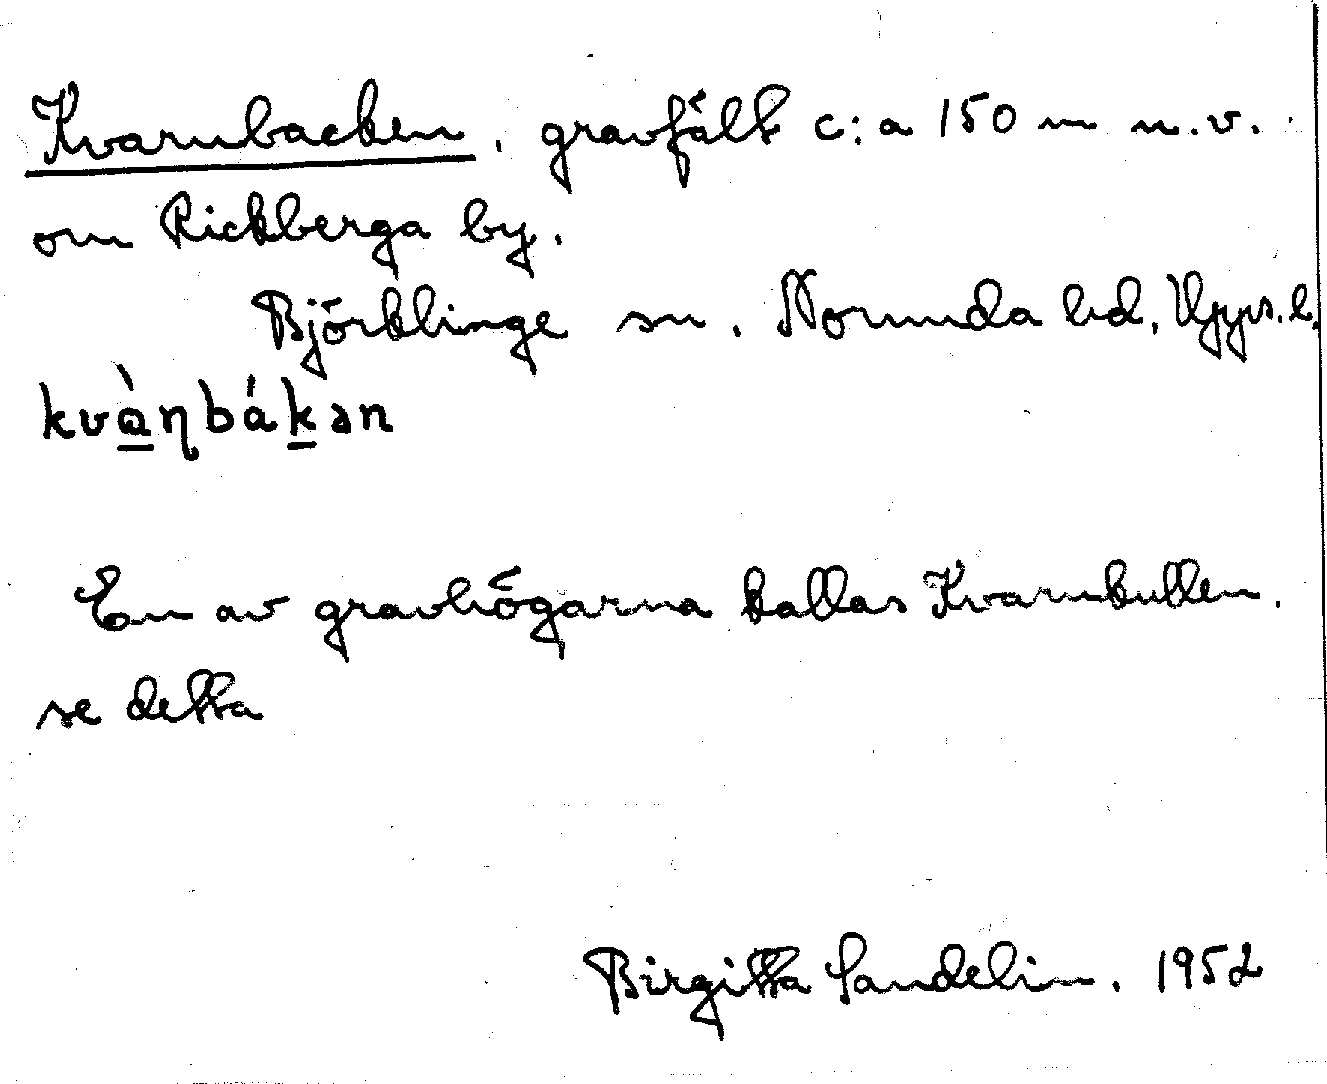 Kvarnbacken, gravfält c:a 150 m n.v.
om Rickberga by.
Björklinge sn. Norunda hd, Upps. l.
kvàŋbákən
En av gravhögarna kallas Kvarnkullen.
se detta
Birgitta Sandelin. 1952